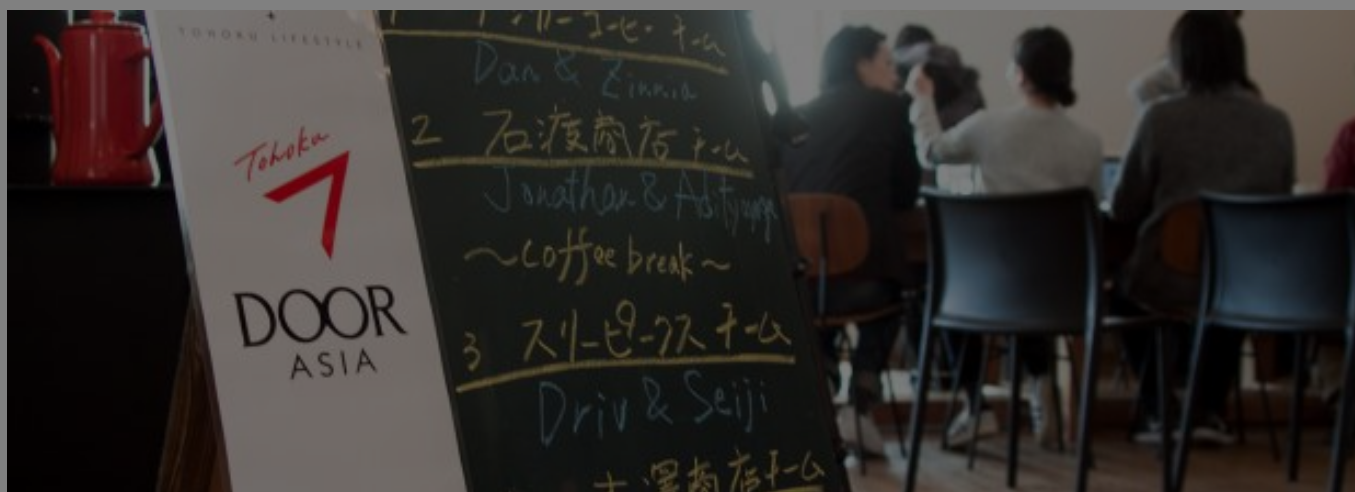 TOHOKU LIFESTYLE
Tohoku
DOOR
ASIA
コーヒーチーム
Dan & Zinnia
2 石渡商店チーム
Jonathan &
~coffee break~
3 スリーピークスチーム
Driv & Seiji
澤商店チーム